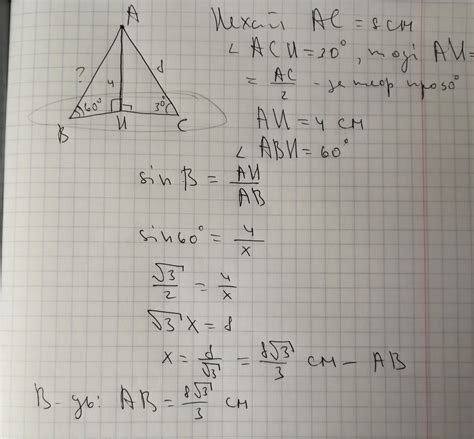 A
?
4
8
60°
30°
B
И
C
Нехай AC = 8 см
∠ ACИ = 30°, тоді AИ =
= AC/2 - це теор про 30°
AИ = 4 см
∠ ABИ = 60°
sin B = AИ/AB
sin 60° = 4/x
√3/2 = 4/x
√3 x = 8
x = 8/√3 = 8√3/3 см - AB
В-дь: AB = 8√3/3 см